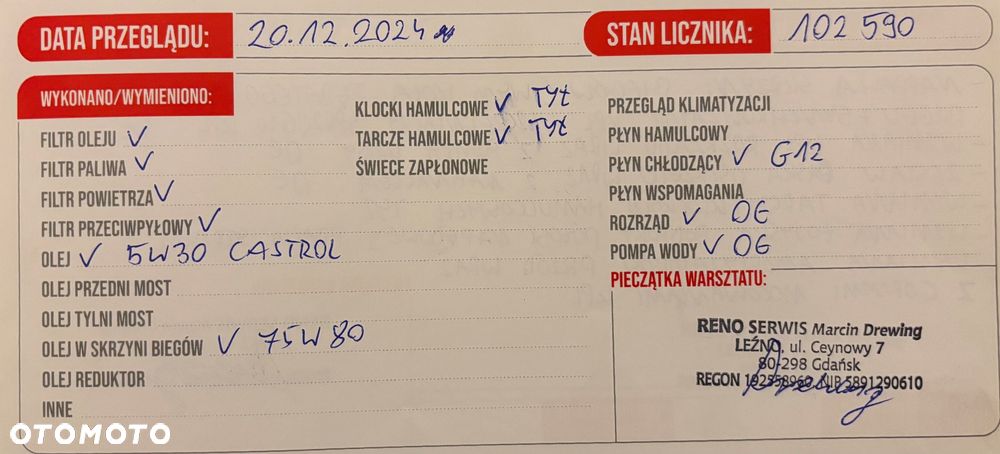 DATA PRZEGLĄDU: 20.12.2024 STAN LICZNIKA: 102 590
WYKONANO/WYMIENIONO:
FILTR OLEJU ✓
FILTR PALIWA ✓
FILTR POWIETRZA ✓
FILTR PRZECIWPYŁOWY ✓
OLEJ ✓ 5W30 CASTROL
OLEJ PRZEDNI MOST
OLEJ TYLNI MOST
OLEJ W SKRZYNI BIEGÓW ✓ 75W80
OLEJ REDUKTOR
INNE
KLOCKI HAMULCOWE ✓ TYŁ
TARCZE HAMULCOWE ✓ TYŁ
ŚWIECE ZAPŁONOWE
PRZEGLĄD KLIMATYZACJI
PŁYN HAMULCOWY
PŁYN CHŁODZĄCY ✓ G12
PŁYN WSPOMAGANIA
ROZRZĄD ✓ OE
POMPA WODY ✓ OE
PIECZĄTKA WARSZTATU:
RENO SERWIS Marcin Drewing
LEŹNO, ul. Ceynowy 7
80-298 Gdańsk
REGON 192558960, NIP 5891290610
OTOMOTO